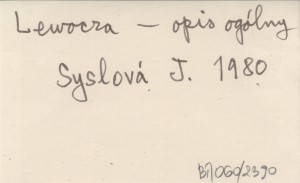 Lewocza – opis ogólny
Syslová J. 1980
BI/060/2390